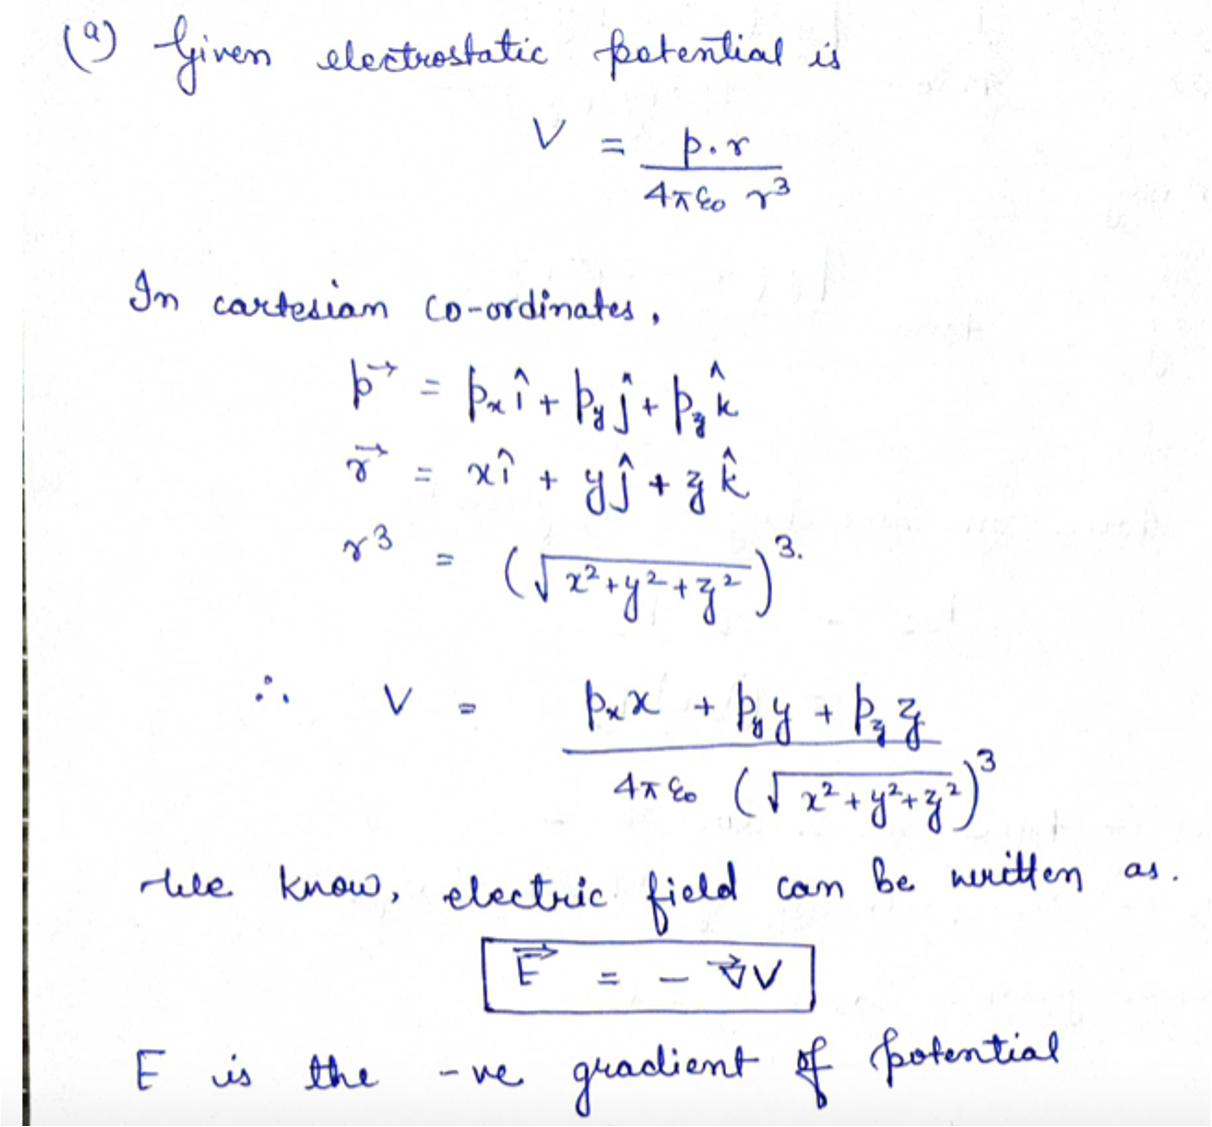 (a) Given electrostatic potential is
V = p.r / 4πε₀ r³
In cartesian co-ordinates,
p⃗ = pₓî + p_yĵ + p_zk̂
r⃗ = xî + yĵ + zk̂
r³ = (√x²+y²+z²)³.
∴ V = pₓx + p_yy + p_zz / 4πε₀ (√x²+y²+z²)³
We know, electric field can be written as.
E⃗ = - ∇⃗V
E is the -ve gradient of potential